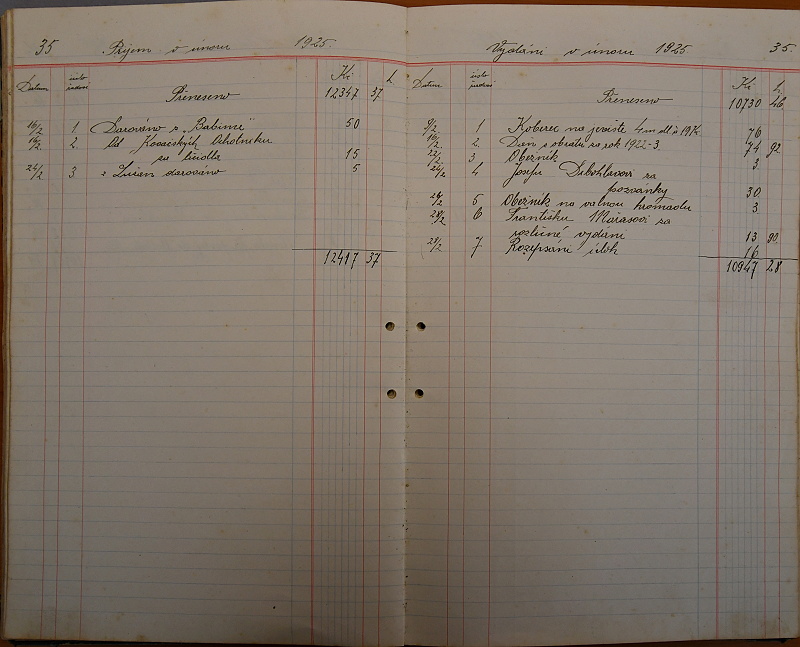 35 Příjem v únoru 1925.
Datum číslo Kč h
Přeneseno 12347 37
16/2 1 Darováno z "Babinié" 50
2 Od Ochotníku
za 15
24/2 3 z darováno 5
12417 37
Vydání v únoru 1925 35.
Datum číslo Kč h
Přeneseno 10730 46
9/2 1 Koberec na jeviště 4 m 76
2 Daň z obratu za rok 1922-3 74 92
22/2 3 Oběžník 3
4 Josefu Drbohlavovi za
pozvánky 30
5 Oběžník na valnou hromadu 3
28/2 6 Františku Márasovi za
rozličné vydání 13 90
28/2 7 Rozepsání úloh 16
10947 28